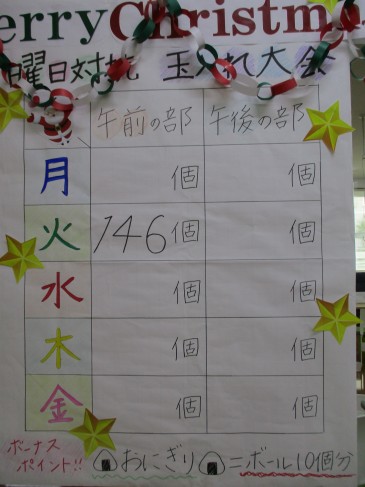 erryChristm
曜日対抗 玉入れ大会
午前の部 午後の部
月 個 個
火 146個 個
水 個 個
木 個 個
金 個 個
ボーナス
ポイント!! おにぎり=ボール10個分